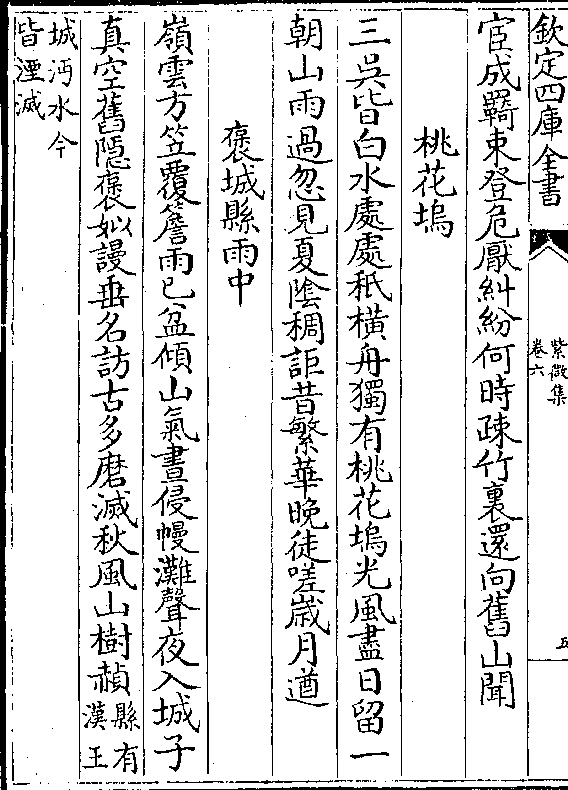 欽定四庫全書
紫微集
卷六
五
宦成羇束登危厭糾紛何時踈竹裏還向舊山聞
桃花塢
三吳皆白水處處秪橫舟獨有桃花塢光風盡日留一
朝山雨過忽見夏陰稠詎昔繁華晚徒嗟歲月遒
褒城縣雨中
嶺雲方笠覆簷雨已盆傾山氣晝侵幔灘聲夜入城子
真空舊隠褒姒謾垂名訪古多磨滅秋風山樹赬縣有
漢王
城沔水今
皆湮滅